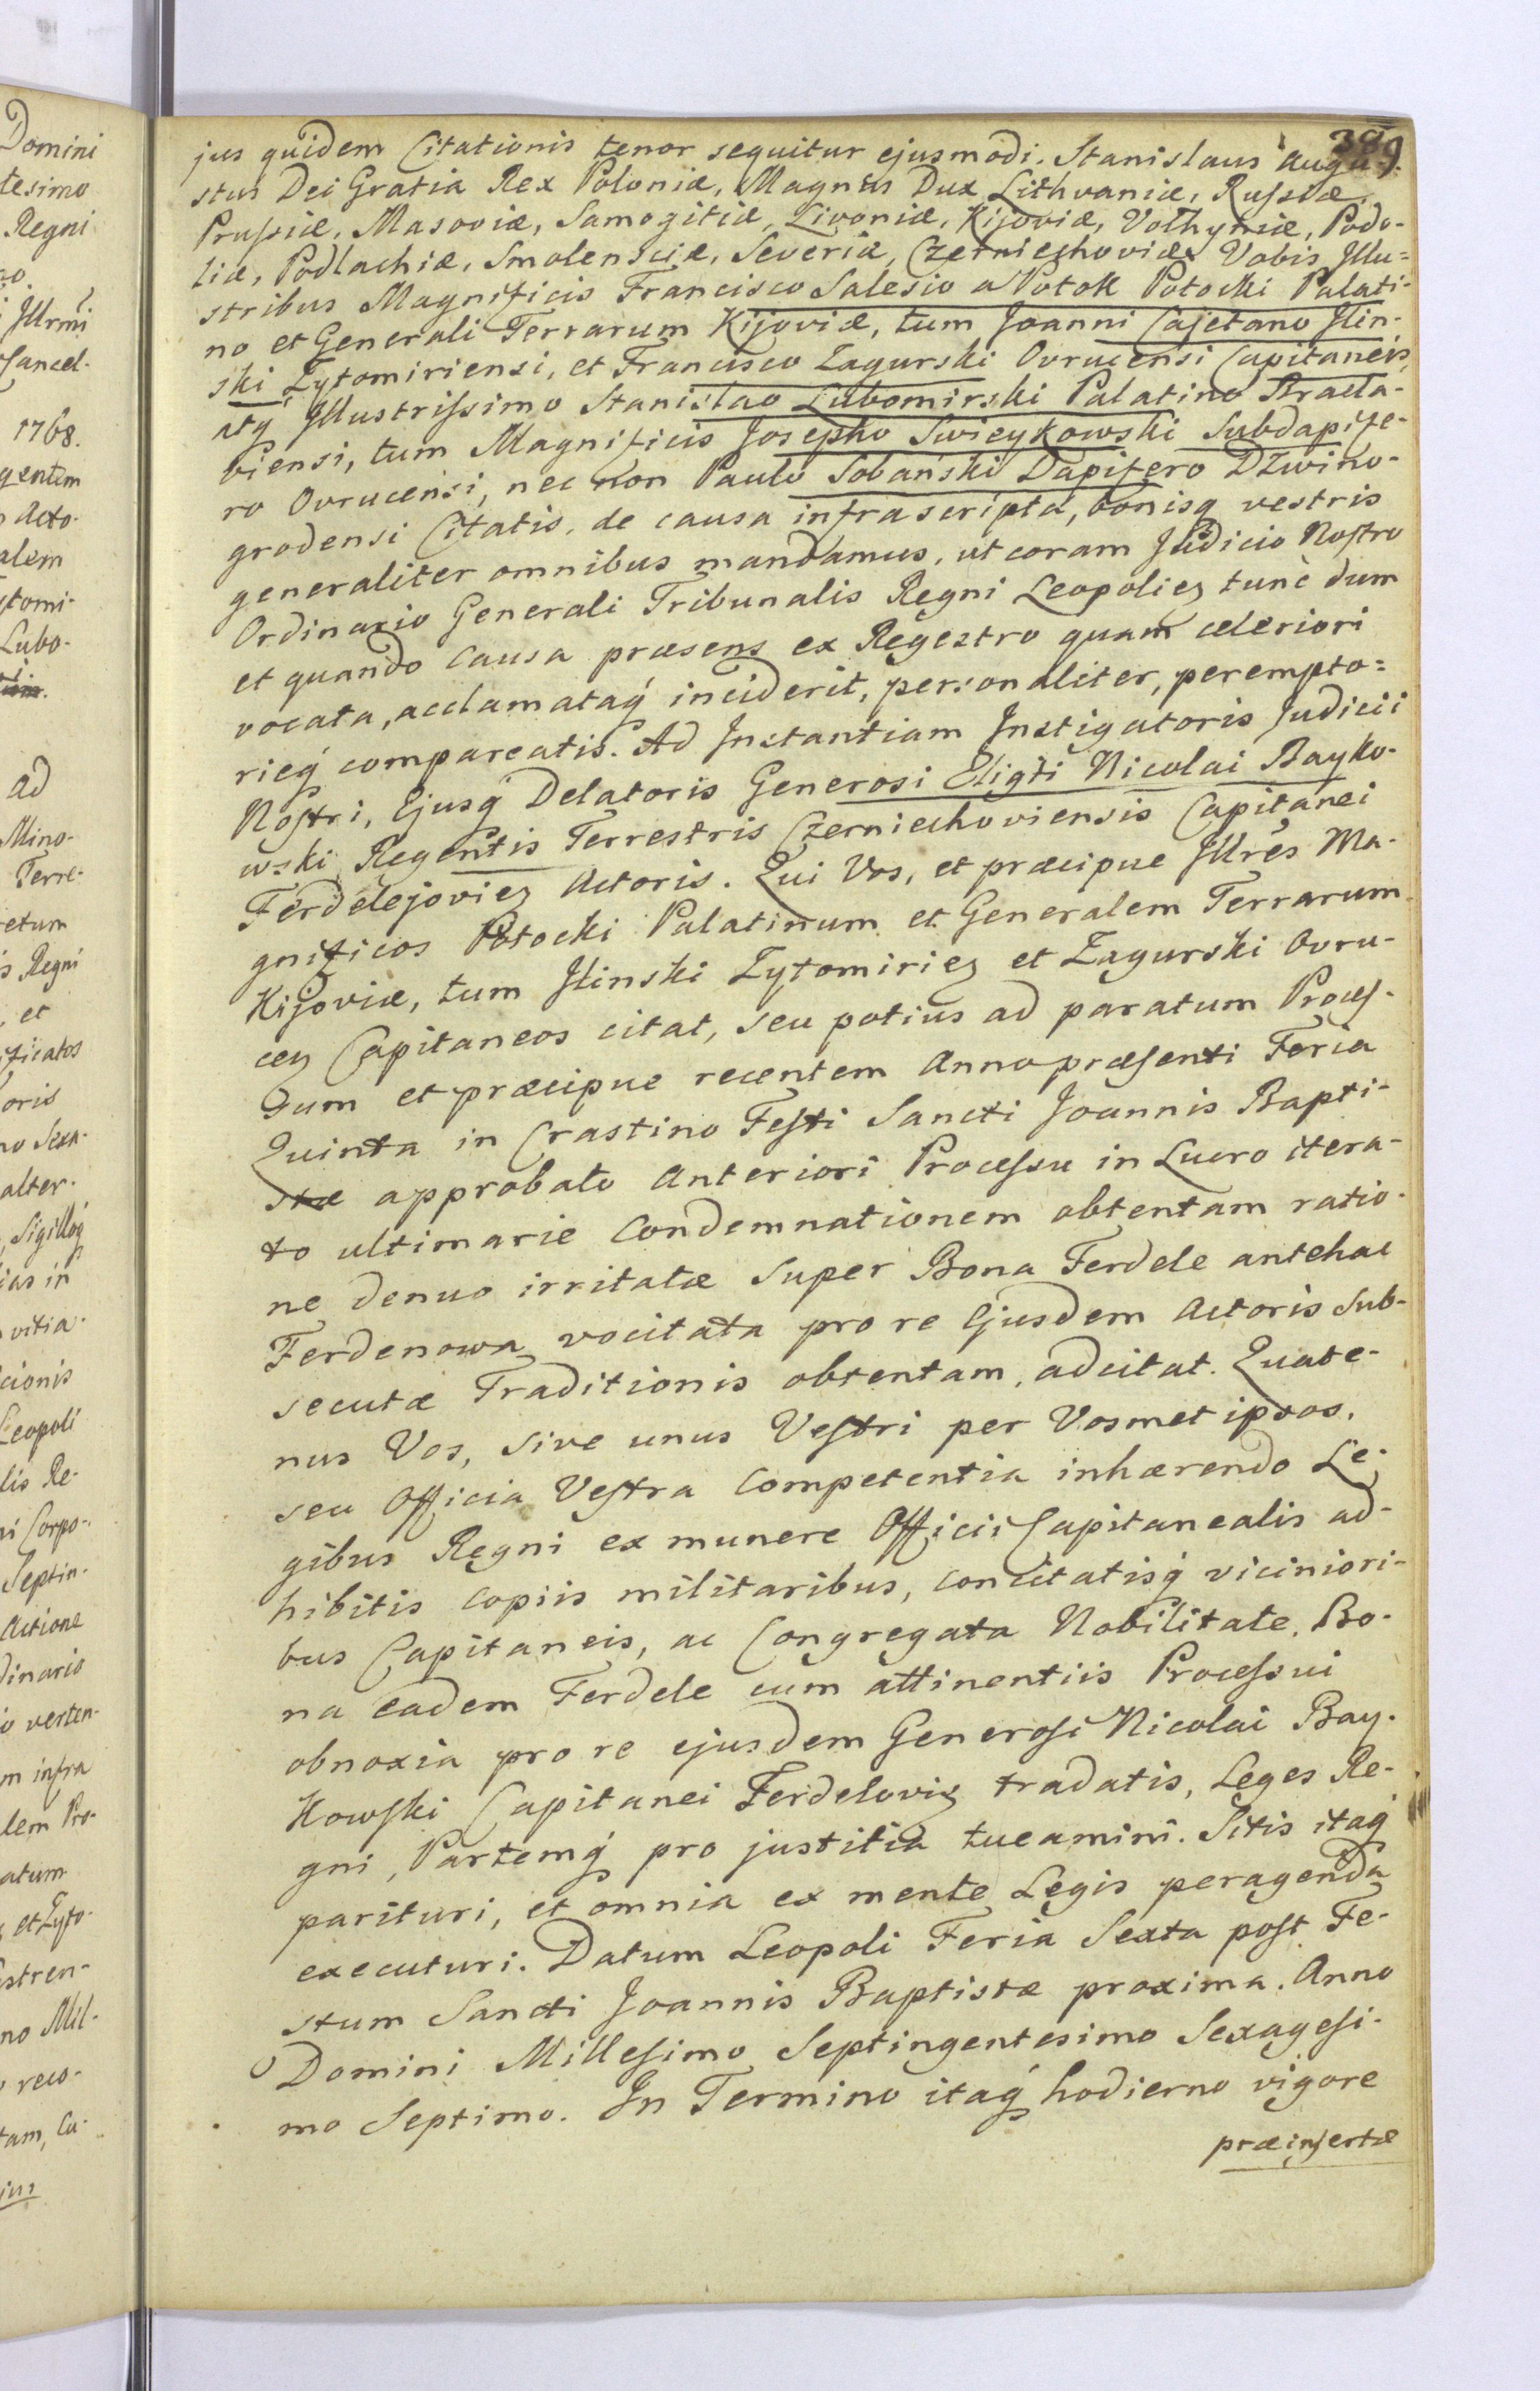 389
jus quidem Citationis tenor sequitur ejusmodi. Stanislaus Augu-
stus Dei Gratia Rex Poloniæ, Magnus Dux Lithvaniæ, Russiæ
Prussiæ, Masoviæ, Samogitiæ, Livoniæ, Kijoviæ, Volhyniæ, Podo-
liæ, Podlachiæ, Smolensciæ, Severiæ, Czerniechoviæ Vobis Illu=
stribus Magnificis Francisco Salesio a Potok Potocki Palati-
no et Generali Terrarum Kijoviæ, tum Joanni Cajetano Ilin-
ski Zytomiriensi, et Francisco Zagurski Ovrucensi Capitaneis,
atq Illustrissimo Stanislao Lubomirski Palatino Bracla-
viensi, tum Magnificis Josepho Swieykowski Subdapife-
ro Ovrucensi, nec non Paulo Sobański Dapifero Dzwino-
grodensi Citatis, de causa infrascripta, bonisq vestris
generaliter omnibus mandamus, ut coram Judicio Nostro
Ordinario Generali Tribunalis Regni Leopoliez tunc dum
et quando causa præsens ex Regestro quam celeriori
vocata, acclamataq inciderit, personaliter, perempto=
rieq compareatis. Ad Instantiam Instigatoris Judicii
Nostri, Ejusq Delatoris Generosi Eligii Nicolai Bayko-
wski Regentis Terrestris Czerniechoviensis Capitanei
Ferdelejoviez Actoris. Qui Vos, et præcipue Illres Ma-
gnificos Potocki Palatinum et Generalem Terrarum
Kijoviæ, tum Ilinski Zytomiriez et Zagurski Ovru-
cez Capitaneos citat, seu potius ad paratum Proces-
sum et præcipue recentem Anno præsenti Feria
Quinta in Crastino Festi Sancti Joannis Bapti-
stæ approbato Anteriori Processu in Lucro itera-
to ultimarie Condemnationem obtentam ratio-
ne denuo irritatæ super Bona Ferdele antehac
Ferdenowa vocitata pro re Ejusdem Actoris sub-
secutæ Traditionis obtentam, adcitat. Quate-
nus Vos, sive unus Vestri per Vosmet ipsos,
seu Officia Vestra Competentia inhærendo Le-
gibus Regni ex munere Officii Capitanealis ad-
hibitis copiis militaribus, concitatisq viciniori-
bus Capitaneis, ac Congregata Nobilitate, Bo-
na eadem Ferdele cum attinentiis Processui
obnoxia pro re ejusdem Generosi Nicolai Bay-
kowski Capitanei Ferdeloviz tradatis, Leges Re-
gni, Partemq pro justitia tueamini. Sitis itaq
parituri, et omnia ex mente Legis peragenda
executuri. Datum Leopoli Feria Sexta post Fe-
stum Sancti Joannis Baptistæ proxima. Anno
Domini Millesimo Septingentesimo Sexagesi-
mo Septimo. In Termino itaq hodierno vigore
præinsertæ
Domini
tesimo
Regni
Illrmi
Cancel-
1768.
gentem
Acto-
alem
ytomi-
Lubo-
ad
Mino-
Terre-
retum
is Regni
, et
ificatos
oris
no Sexa-
alter-
, Sigilloq
ias in
vitia-
cionis
Leopoli
lis Re-
ni Corpo-
Septin-
Actione
dinario
io verten-
m infra
lem Pro-
atum
et Zyto-
stren-
no Mil-
reco-
tam, Cu-
jus